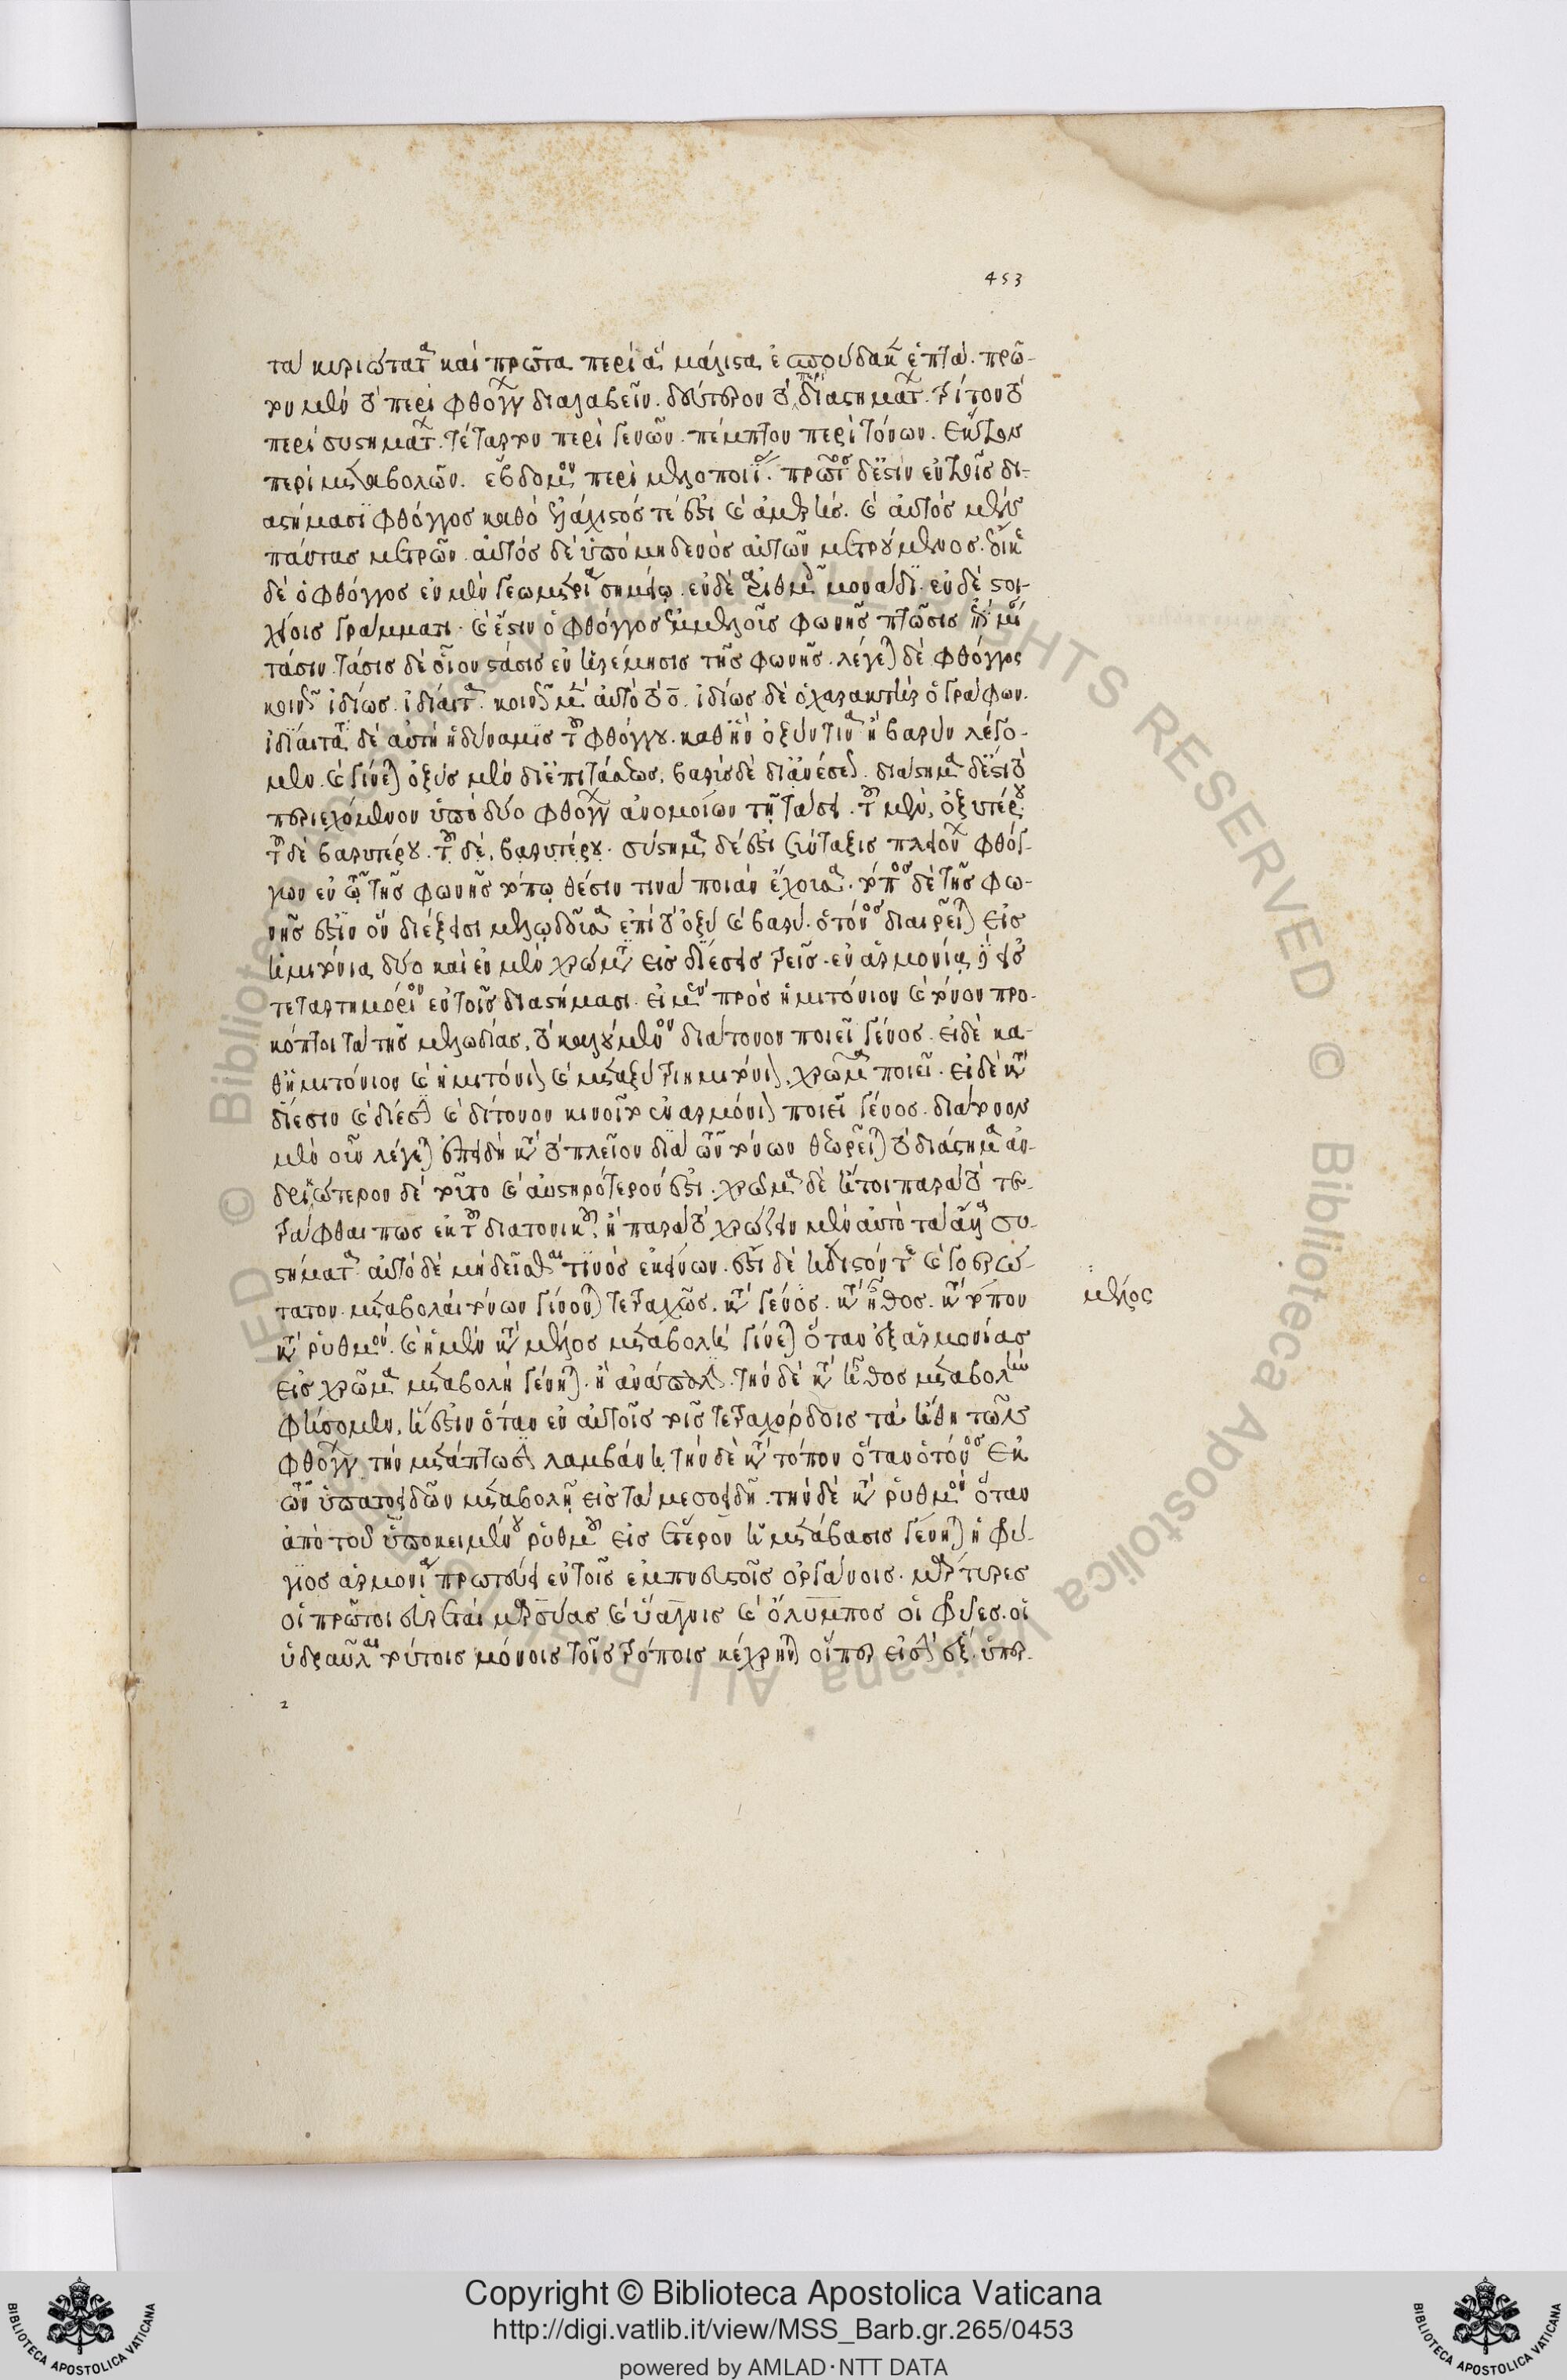 453
τὰ κυριώτατα καὶ πρῶτα περὶ ἃ μάλιστα ἐσπούδακεν ἑπτά. πρῶ-
τον μὲν τὸ περὶ φθόγγων διαλαβεῖν. δεύτερον τὸ περὶ διαστημάτων. τρίτον τὸ
περὶ συστημάτων. τέταρτον περὶ γενῶν. πέμπτον περὶ τόνων. ἕκτον
περὶ μεταβολῶν. ἕβδομον περὶ μελοποιΐας. πρῶτος δέ ἐστιν ἐν τοῖς δι-
αστήμασι φθόγγος καθὸ ἐλάχιστός τέ ἐστι καὶ ἀμερής. καὶ αὐτὸς μὲν
πάντας μετρῶν. αὐτὸς δὲ ὑπὸ μηδενὸς αὐτῶν μετρούμενος. ἔοικε
δὲ ὁ φθόγγος ἐν μὲν γεωμετρίᾳ σημείῳ. ἐν δὲ ἀριθμοῖς μονάδι. ἐν δὲ στοι-
χείοις γράμματι. καὶ ἔστιν ὁ φθόγγος ἐμμελοῦς φωνῆς πτῶσις ἐπὶ μίαν
τάσιν. τάσις δὲ οἷον στάσις ἐν ἠρεμήσις τῆς φωνῆς. λέγεται δὲ φθόγγος
κοινῶς ἰδίως. ἰδιαίτατα. κοινῶς μὲν αὐτὸ τὸ . ἰδίως δὲ ὁ χαρακτὴρ ὁ γράφων.
ἰδιαίτατα δὲ αὐτὴ ἡ δύναμις τοῦ φθόγγου. καθ' ἣν ὀξύν τινα ἢ βαρὺν λέγο-
μεν. καὶ γίνεται ὀξὺς μὲν δι' ἐπιτάσεως, βαρὺς δὲ δι' ἀνέσεως. διάστημα δέ ἐστι τὸ
περιεχόμενον ὑπὸ δύο φθόγγων ἀνομοίων τῇ τάσει. τοῦ μὲν, ὀξυτέρου.
τοῦ δὲ βαρυτέρου. τοῦ δὲ, βαρυτέρου. σύστημα δέ ἐστι σύνταξις πλειόνων φθόγ-
γων ἐν ᾧ τῆς φωνῆς τόπῳ θέσιν τινὰ ποιὰν ἔχουσα. τόπος δὲ τῆς φω-
νῆς ἐστιν οὗ διέξεισι μελῳδοῦσα ἐπὶ τὸ ὀξὺ καὶ βαρύ. ὁ τόνος διαιρεῖται εἰς
ἡμιτόνια δύο καὶ ἐν μὲν χρώματι εἰς διέσεις τρεῖς. ἐν ἁρμονίᾳ δὲ εἰς
τεταρτημόριον ἐν τοῖς διαστήμασι. εἰ μὲν πρὸς ἡμιτόνιον καὶ τόνον προ-
κόπτοι τὰ τῆς μελῳδίας, τὸ καλούμενον διάτονον ποιεῖ γένος. εἰ δὲ κα-
θ' ἡμιτόνιον καὶ ἡμιτόνιον καὶ μεταξὺ τριημιτόνιον, χρῶμα ποιεῖ. εἰ δὲ κατὰ
δίεσιν καὶ δίεσιν καὶ δίτονον κινοῖτο ἐναρμόνιον ποιεῖ γένος. διάτονον
μὲν οὖν λέγεται ἐπειδὴ κατὰ τὸ πλεῖον διὰ τῶν τόνων θεωρεῖται τὸ διάστημα ἀν-
δρικώτερον δὲ τοῦτο καὶ αὐστηρότερόν ἐστι. χρῶμα δὲ ἤτοι παρὰ τὸ τε-
τράφθαι πως ἐκ τοῦ διατονικοῦ, ἢ παρὰ τὸ χρώζειν μὲν αὐτὸ τὰ ἄλλα συ-
στήματα αὐτὸ δὲ μὴ δεῖσθαι τινὸς ἐκείνων. ἔστι δὲ ἥδιστόν τε καὶ γοερώ-
τατον. μεταβολαὶ τόνων γίνονται τετραχῶς. κατὰ γένος. κατὰ ἦθος. κατὰ τόπον
κατὰ ῥυθμόν. καὶ ἡ μὲν κατὰ μέλος μεταβολὴ γίνεται ὅταν ἐξ ἁρμονίας
εἰς χρῶμα μεταβολὴ γένηται. ἢ ἀνάπαλιν. τὴν δὲ κατὰ ἦθος μεταβολὴν
φήσομεν, ἥ ἐστιν ὅταν ἐν αὐτοῖς τοῖς τετραχόρδοις τὰ ἤθη τῶν
φθόγγων τὴν μετάπτωσιν λαμβάνῃ. τὴν δὲ κατὰ τόπον ὅταν ὁ τόνος ἐκ
τῶν ὑπατοειδῶν μεταβολῇ εἰς τὰ μεσοειδῆ. τὴν δὲ κατὰ ῥυθμὸν ὅταν
ἀπὸ τοῦ ὑποκειμένου ῥυθμοῦ εἰς ἕτερον ἡ μετάβασις γένηται ἡ φρύ-
γιος ἁρμονία πρωτεύει ἐν τοῖς ἐμπνευστοῖς ὀργάνοις. μάρτυρες
οἱ πρῶτοι εὑρεταὶ μαρσύας καὶ ὕαγνις καὶ ὄλυμπος οἱ φρύγες. οἱ
ὑδραῦλαι τούτοις μόνοις τοῖς τρόποις κέχρηνται οἵπερ εἰσὶν ἕξ. ὑπερ-
μέλος
Copyright © Biblioteca Apostolica Vaticana
http://digi.vatlib.it/view/MSS_Barb.gr.265/0453
powered by AMLAD·NTT DATA